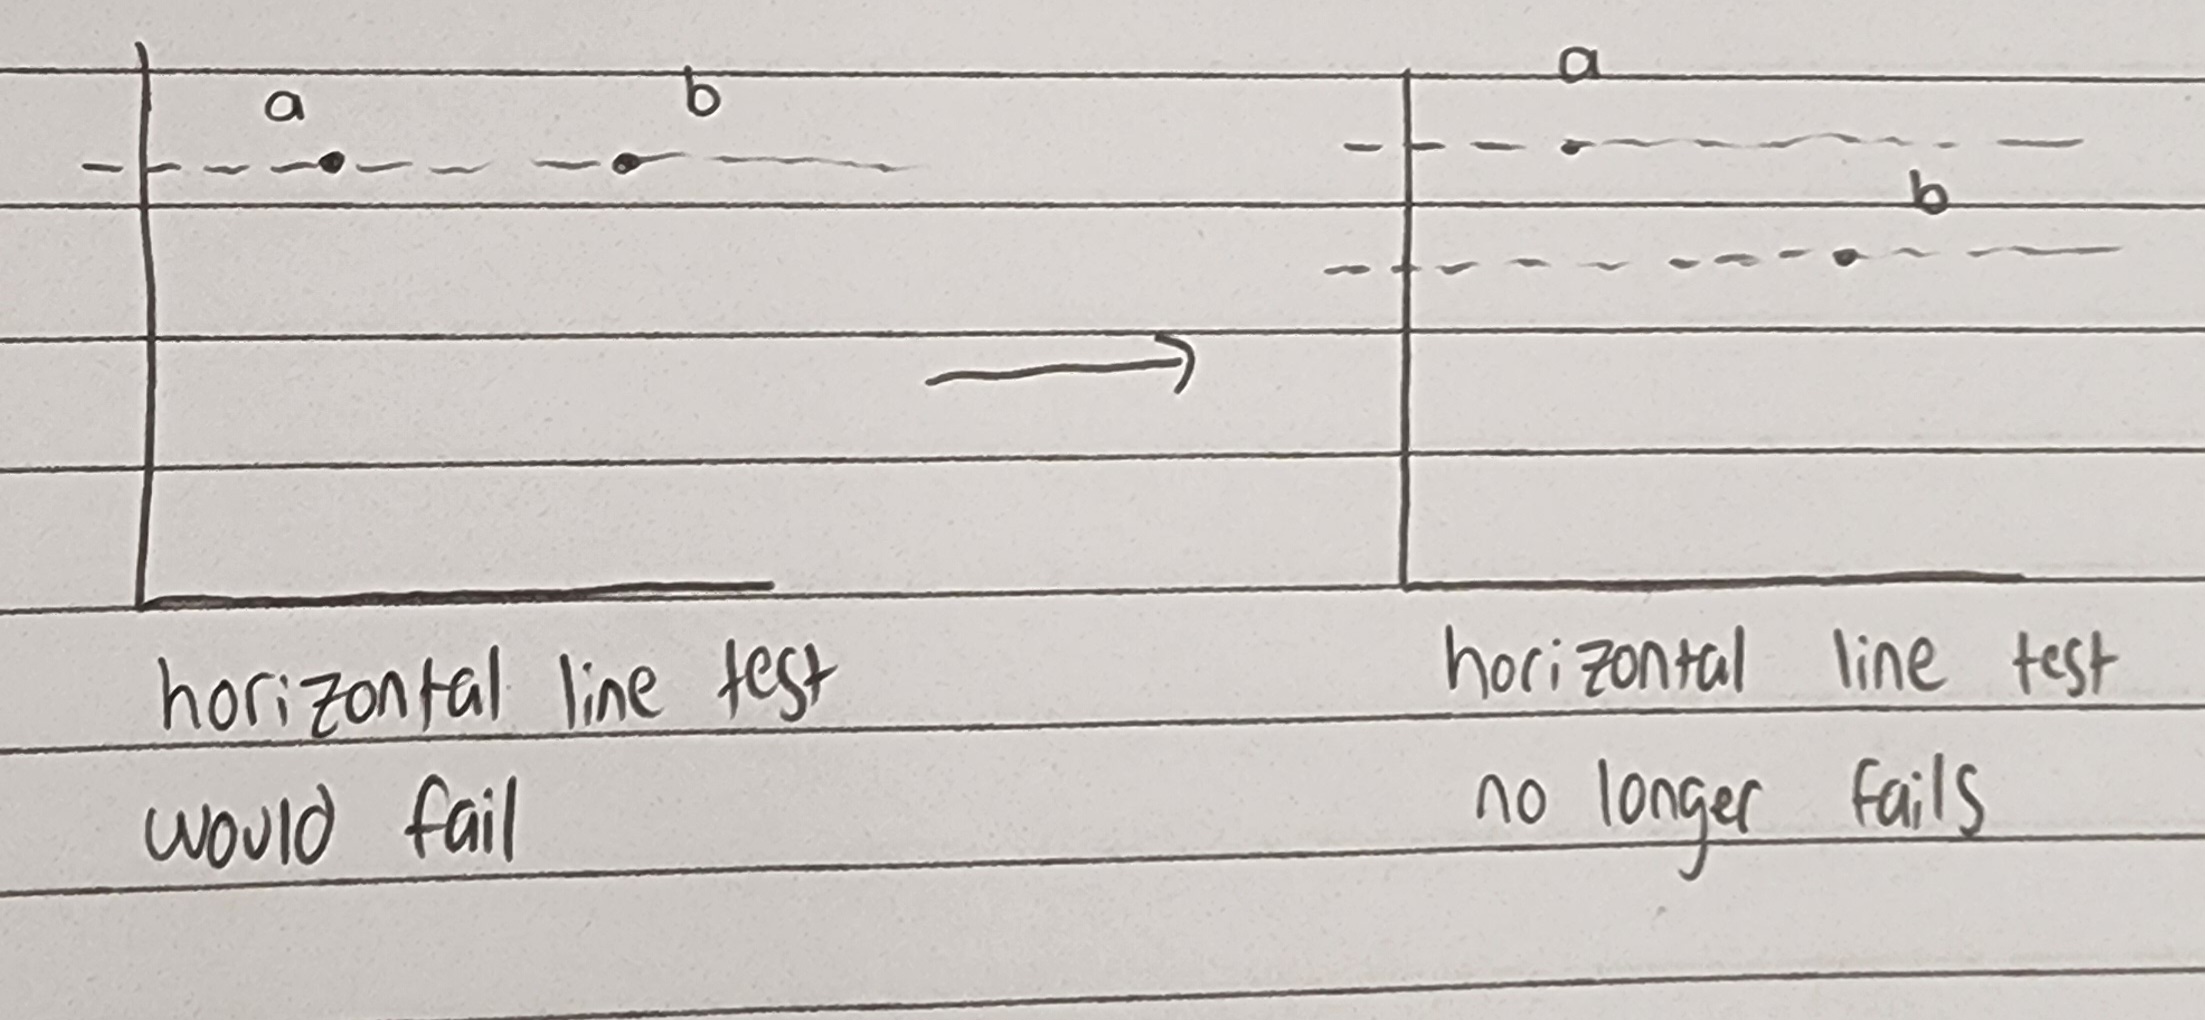 a b
a
b
horizontal line test
would fail
horizontal line test
no longer fails